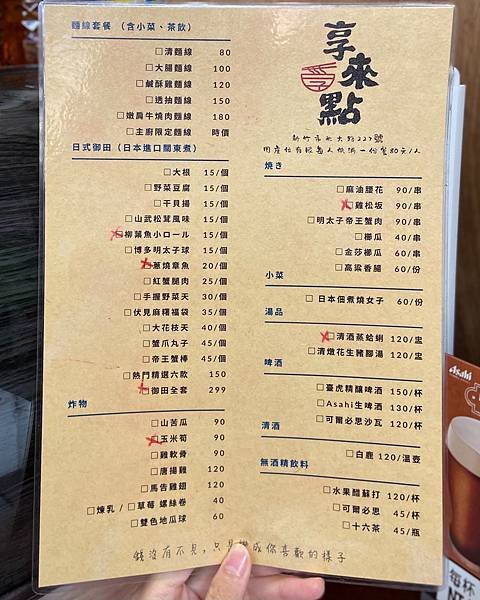 麵線套餐 (含小菜、茶飲)
□清麵線 80
□大腸麵線 100
□鹹酥雞麵線 120
□透抽麵線 150
□嫩肩牛燒肉麵線 180
□主廚限定麵線 時價
日式御田 (日本進口關東煮)
□大根 15/個
□野菜豆腐 15/個
□干貝揚 15/個
□山武松茸風味 15/個
□柳葉魚小ロール 15/個
□博多明太子球 15/個
□蔥燒章魚 20/個
□紅蟹腿肉 25/個
□手握野菜天 30/個
□伏見麻糬福袋 35/個
□大花枝天 40/個
□蟹爪丸子 45/個
□帝王蟹棒 45/個
□熱門精選六款 150
□御田全套 299
炸物
□山苦瓜 90
□玉米筍 90
□雞軟骨 90
□唐揚雞 120
□馬告雞翅 120
□煉乳 / □草莓 螺絲卷 40
□雙色地瓜球 60
享來點
新竹市北大路227號
內用低消每人
燒き
□麻油腰花 90/串
□雞松坂 90/串
□明太子帝王蟹肉 90/串
□櫛瓜 40/串
□金莎櫛瓜 60/串
□高粱香腸 60/份
小菜
□日本佃煮燒女子 60/份
湯品
□清酒蒸蛤蜊 120/盅
□清燉花生豬腳湯 120/盅
啤酒
□臺虎精釀啤酒 150/杯
□Asahi生啤酒 130/杯
□可爾必思沙瓦 120/杯
清酒
□白鹿 120/溫壺
無酒精飲料
□水果醋蘇打 120/杯
□可爾必思 45/杯
□十六茶 45/瓶
錢沒有不見，只是變成你喜歡的樣子
Asahi
每杯